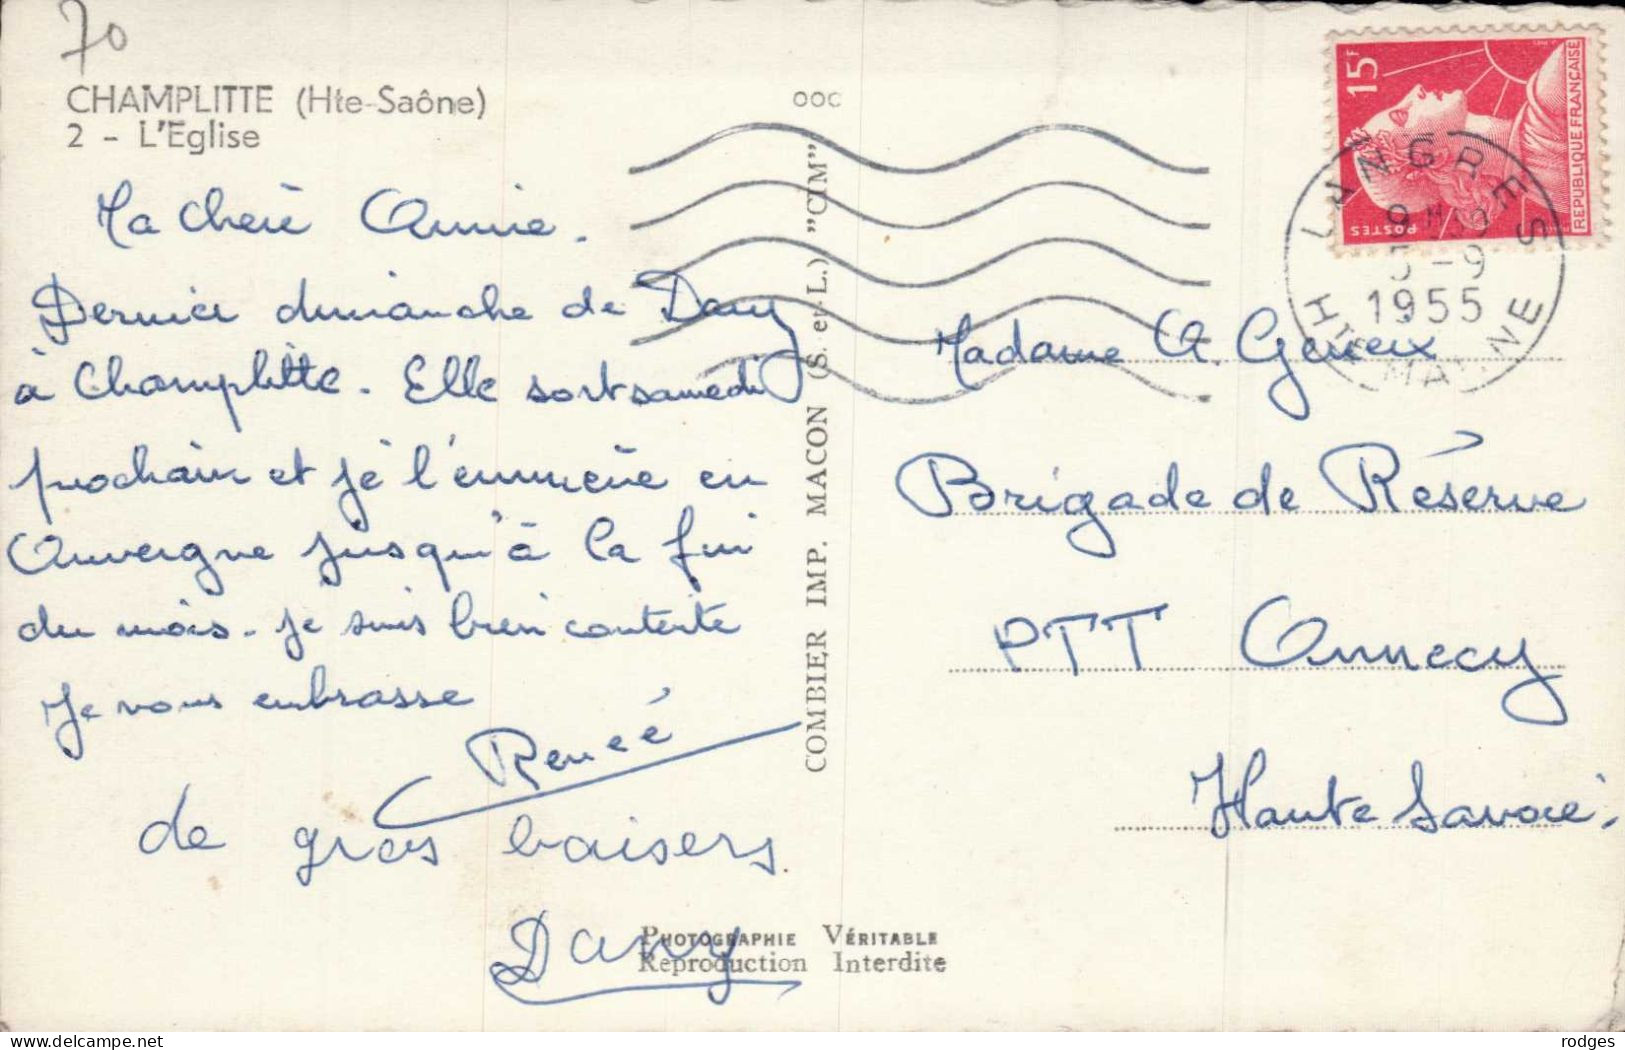 70
CHAMPLITTE (Hte-Saône)
2 - L'Eglise
Ma chère Annie.
Dernier dimanche de Dany
à Champlitte. Elle sort samedi
prochain et je l'emmène en
Auvergne jusqu'à la fin
du mois. Je suis bien contente
Je vous embrasse
Renée
de gros baisers.
Dany
PHOTOGRAPHIE VÉRITABLE
Reproduction Interdite
COMBIER IMP. MACON (S.-et-L.) "CIM"
OOC
15F
POSTES
REPUBLIQUE FRANÇAISE
LANGRES
5-9
1955
HTE MARNE
Madame A.
Brigade de Réserve
PTT Annecy
Haute Savoie.
delcampe.net
rodges